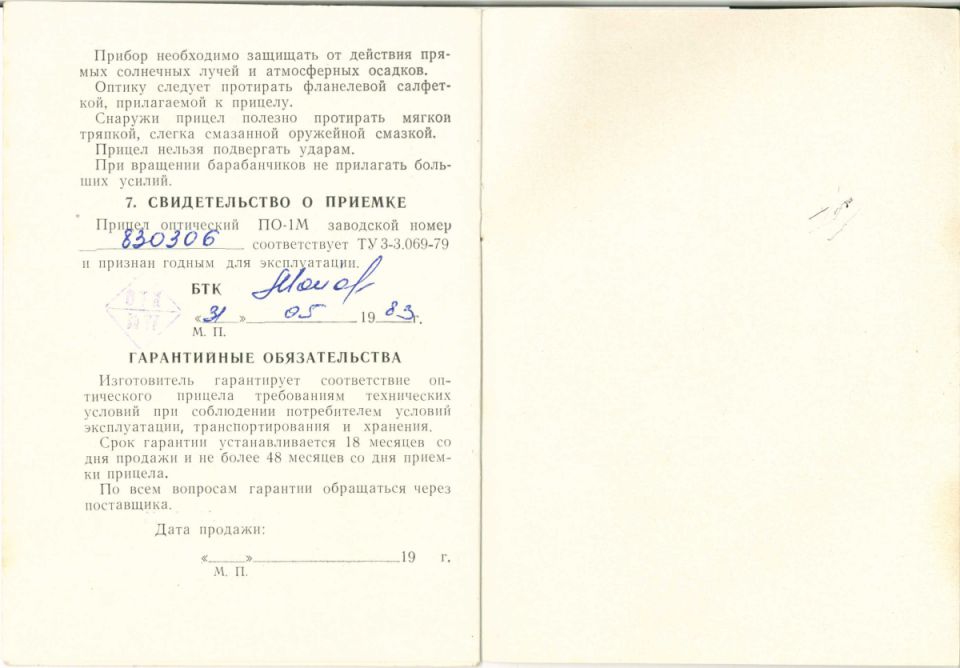 Прибор необходимо защищать от действия пря-
мых солнечных лучей и атмосферных осадков.
Оптику следует протирать фланелевой салфет-
кой, прилагаемой к прицелу.
Снаружи прицел полезно протирать мягкой
тряпкой, слегка смазанной оружейной смазкой.
Прицел нельзя подвергать ударам.
При вращении барабанчиков не прилагать боль-
ших усилий.
7. СВИДЕТЕЛЬСТВО О ПРИЕМКЕ
Прицел оптический ПО-1М заводской номер
830306 соответствует ТУ 3-3.069-79
и признан годным для эксплуатации.
БТК
ОТК
«31» 05 1983г.
М. П.
ГАРАНТИЙНЫЕ ОБЯЗАТЕЛЬСТВА
Изготовитель гарантирует соответствие оп-
тического прицела требованиям технических
условий при соблюдении потребителем условий
эксплуатации, транспортирования и хранения.
Срок гарантии устанавливается 18 месяцев со
дня продажи и не более 48 месяцев со дня прием-
ки прицела.
По всем вопросам гарантии обращаться через
поставщика.
Дата продажи:
«____»____________________19 г.
М. П.